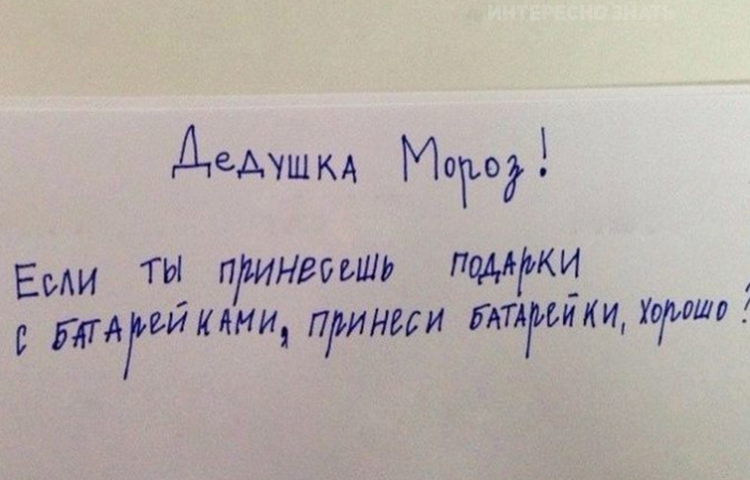 ИНТЕРЕСНО ЗНАТЬ
Дедушка Мороз!
Если ты принесешь подарки
с батарейками, принеси батарейки, хорошо?